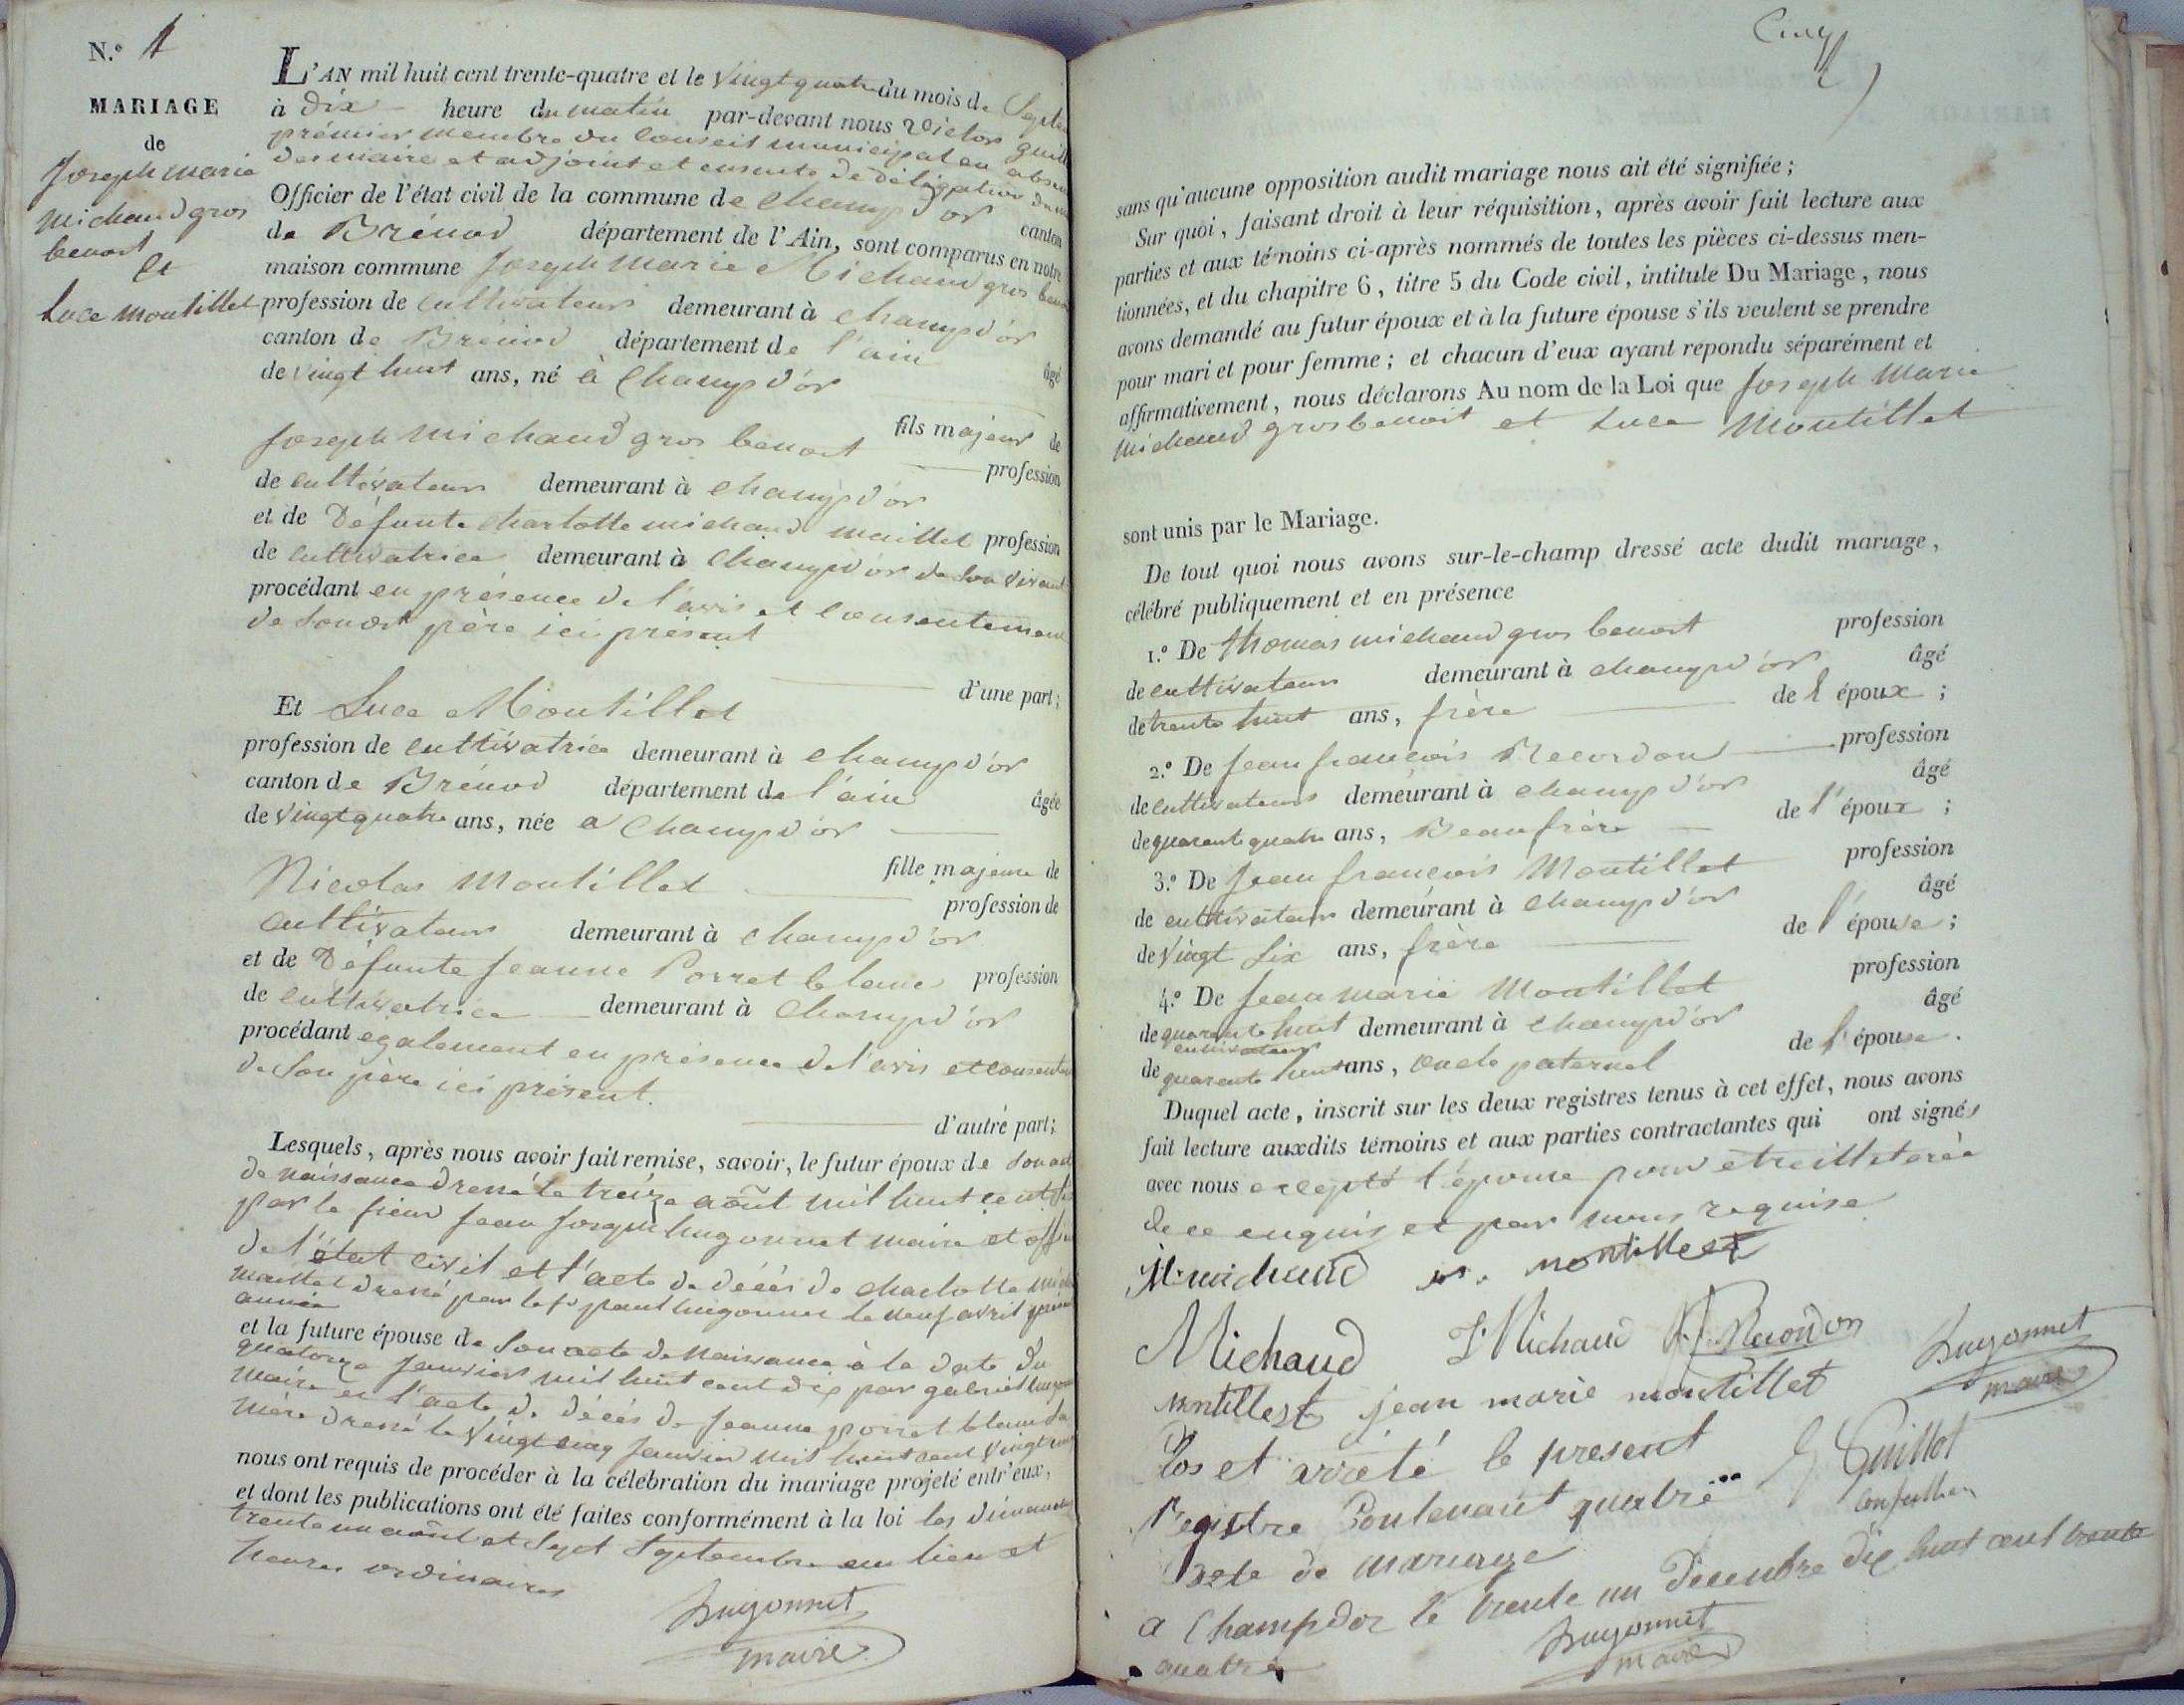 N.º 4
MARIAGE
de
Joseph marie
michaud gros
benoit
et
Luce montillet
L'AN mil huit cent trente-quatre et le vingt quatre du mois de Septem
à dix heure du matin par-devant nous Victor Guill
prémier membre du Conseil municipal en absen
des maire et adjoint et ensuite de délégation du
Officier de l'état civil de la commune de champd'or canton
de Brénod département de l'Ain, sont comparus en notre
maison commune Joseph Marie Michaud gros benoit
profession de cultivateur demeurant à champd'or
canton de Brénod département de l'ain âgé
de vingt huit ans, né à Champd'or
fils majeur de
Joseph Michaud gros benoit profession
de cultivateur demeurant à champd'or
et de Défunte charlotte michaud maillet profession
de cultivatrice demeurant à Champd'or de son vivant
procédant en présence de l'avis et consentement
de son père ici présent
d'une part;
Et Luce Montillet
profession de cultivatrice demeurant à champd'or
canton de Brénod département de l'ain âgée
de vingt quatre ans, née a Champd'or
fille majeure de
Nicolas Montillet profession de
cultivateur demeurant à champd'or
et de Défunte Jeanne Porret blanc profession
de cultivatrice demeurant à Champd'or
procédant egalement en présence de l'avis et consente
de son père ici présent.
d'autre part;
Lesquels, après nous avoir fait remise, savoir, le futur époux de son act
de naissance dressé le treize août mil huit cent
par le sieur Jean Joseph hugonnet maire et off
de l'état civil et l'acte de décés de charlotte mich
maillet dressé par le sr paul hugonnet le neuf avril
année
et la future épouse de son acte de Naissance à la date du
quatorze Janvier mil huit cent dix par gabriel hugon
maire et l'acte de décés de Jeanne porret blanc sa
mère dressé le vingt cinq Janvier mil huit cent vingt
nous ont requis de procéder à la célébration du mariage projeté entr'eux,
et dont les publications ont été faites conformément à la loi les dimanches
trente un août et Sept Septembre aux lieu et
heures ordinaires
hugonnet
maire
Cinq
sans qu'aucune opposition audit mariage nous ait été signifiée;
Sur quoi, faisant droit à leur réquisition, après avoir fait lecture aux
parties et aux témoins ci-après nommés de toutes les pièces ci-dessus men-
tionnées, et du chapitre 6, titre 5 du Code civil, intitulé Du Mariage, nous
avons demandé au futur époux et à la future épouse s'ils veulent se prendre
pour mari et pour femme; et chacun d'eux ayant repondu séparément et
affirmativement, nous déclarons Au nom de la Loi que Joseph Marie
Michaud gros benoit et Luce Montillet
sont unis par le Mariage.
De tout quoi nous avons sur-le-champ dressé acte dudit mariage,
célébré publiquement et en présence
1.º De thomas michaud gros benoit profession
de cultivateur demeurant à champd'or âgé
de trente huit ans, frère de l époux;
2.º De Jean françois Recordon profession
de cultivateur demeurant à champd'or âgé
de quarante quatre ans, Beaufrère de l'époux;
3.º De Jean françois Montillet profession
de cultivateur demeurant à champd'or âgé
de vingt six ans, frère de l'épouse;
4.º De Jean marie Montillet profession
de quarante huit demeurant à champd'or âgé
cultivateur
de quarante huit ans, oncle paternel de l'épouse.
Duquel acte, inscrit sur les deux registres tenus à cet effet, nous avons
fait lecture auxdits témoins et aux parties contractantes qui ont signés
avec nous excepté l'épouse pour être illeterée
de ce enquis et par nous requise
michaud montillet
Michaud Michaud Recordon
montillet jean marie montillet hugonnet
maire
Clos et arrêté le present Guillot
Registre Contenant quatre conseiller
acte de mariage
a Champdor le trente un Décembre dix huit cent trente
quatre hugonnet
maire